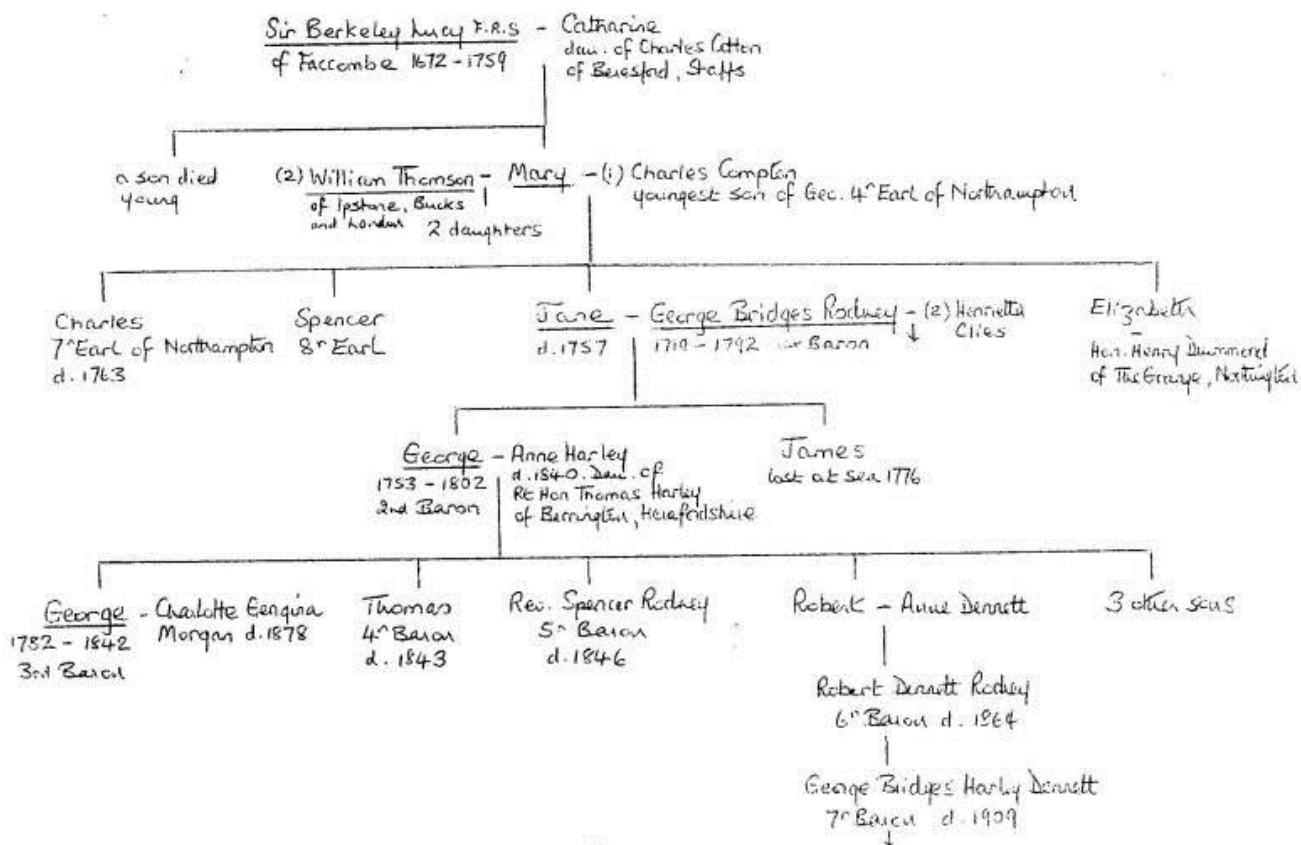 Sir Berkeley Lucy F.R.S - Catharine
of Faccombe 1672 - 1759
dau. of Charles Cotton
of Beresford, Staffs
a son died
young
(2) William Thomson - Mary - (1) Charles Compton
of Ipstone, Bucks
and London
2 daughters
youngest son of Geo. 4th Earl of Northampton
Charles
7th Earl of Northampton
d. 1763
Spencer
8th Earl
Jane - George Bridges Rodney - (2) Henrietta
Clies
d. 1757
1719 - 1792 Baron
Elizabeth
-
Hon. Henry Drummond
of The Grange, Northington
George - Anne Harley
1753 - 1802
2nd Baron
d. 1840. Dau. of
Rt Hon Thomas Harley
of Berrington, Herefordshire
James
lost at sea 1776
George - Charlotte
1782 - 1842
3rd Baron
Morgan d. 1878
Thomas
4th Baron
d. 1843
Rev. Spencer Rodney
5th Baron
d. 1846
Robert - Anne Dennett
3 other sons
Robert Dennett Rodney
6th Baron d. 1864
George Bridges Harley Dennett
7th Baron d. 1909